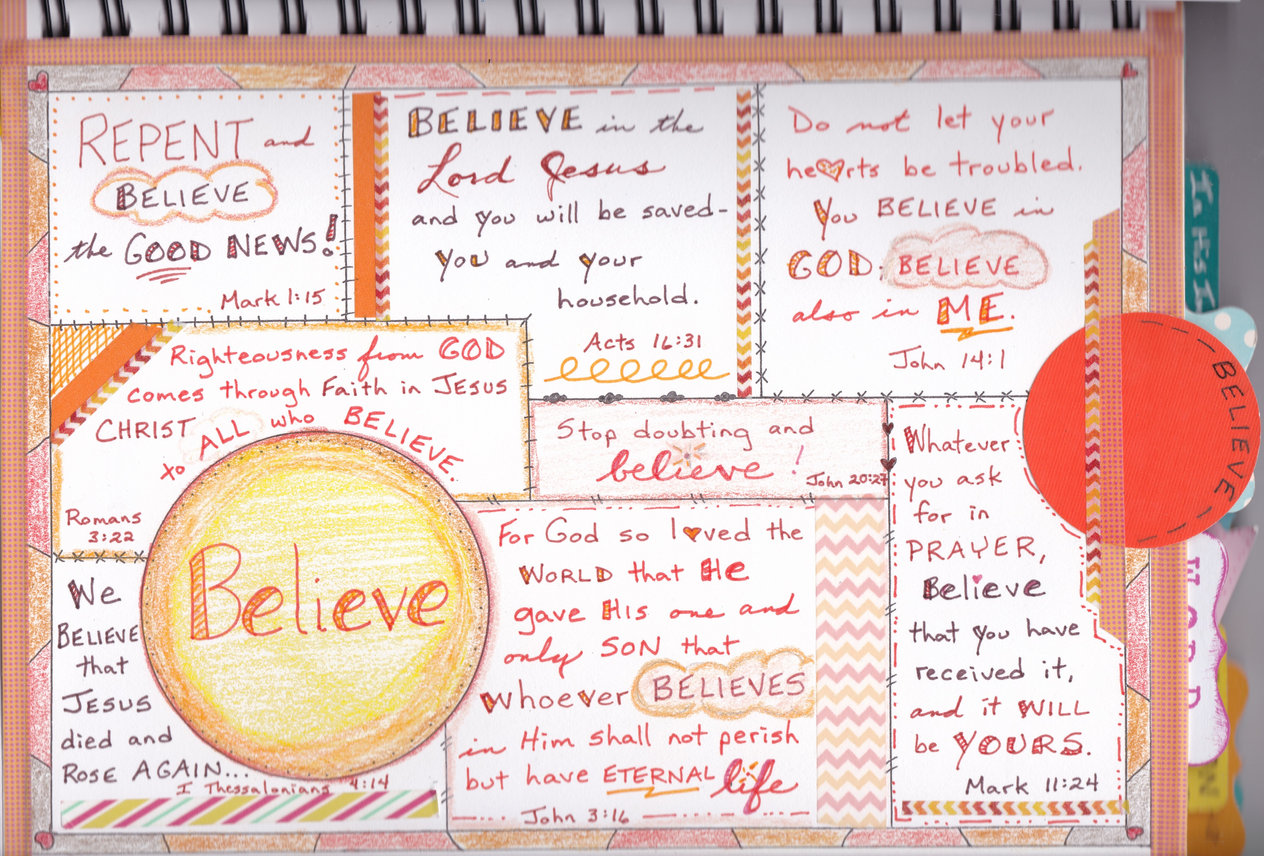 REPENT and
BELIEVE
the GOOD NEWS!
Mark 1:15
BELIEVE in the
Lord Jesus
and you will be saved-
you and your
household.
Acts 16:31
Do not let your
hearts be troubled.
You BELIEVE in
GOD; BELIEVE
also in ME.
John 14:1
Righteousness from GOD
comes through Faith in JESUS
CHRIST
to ALL who BELIEVE.
Romans
3:22
Stop doubting and
believe!
John 20:27
Whatever
you ask
for in
PRAYER,
Believe
that you have
received it,
and it WILL
be YOURS.
Mark 11:24
BELIEVE
We
BELIEVE
that
JESUS
died and
ROSE AGAIN...
I Thessalonians 4:14
Believe
For God so loved the
WORLD that He
gave His one and
only SON that
whoever BELIEVES
in Him shall not perish
but have ETERNAL life
John 3:16